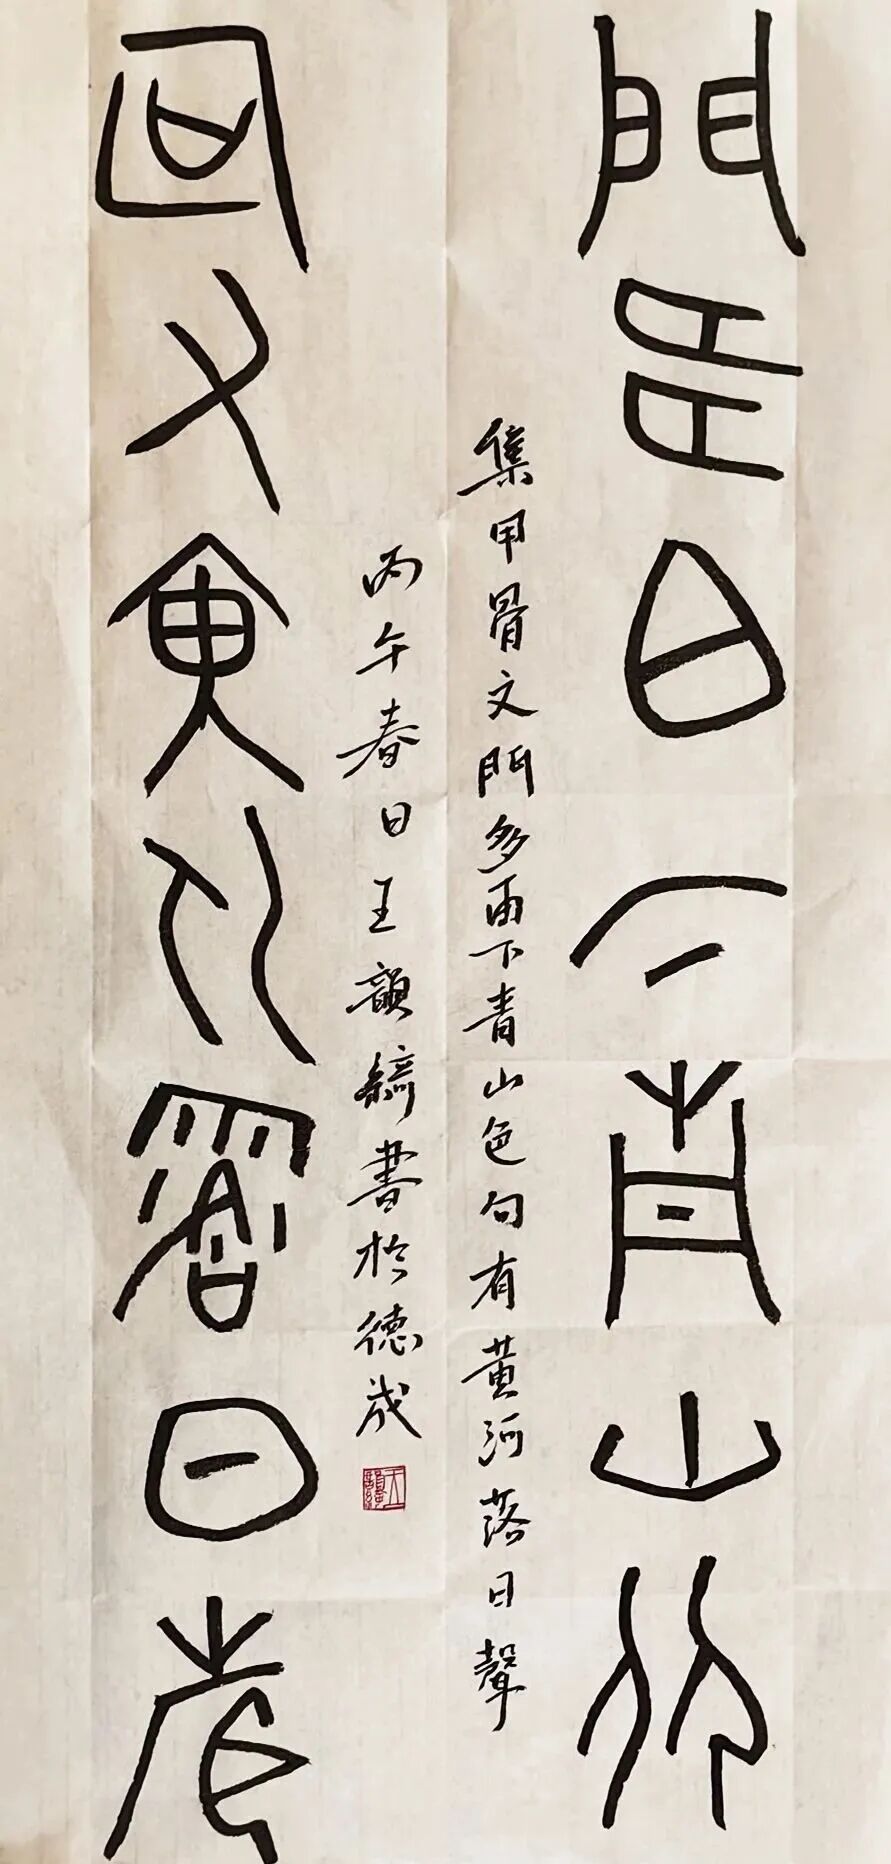 門多白下青山色
集甲骨文門多下青山色句有黃河落日聲
丙午春日王韻書於德成
句有黃河落日聲